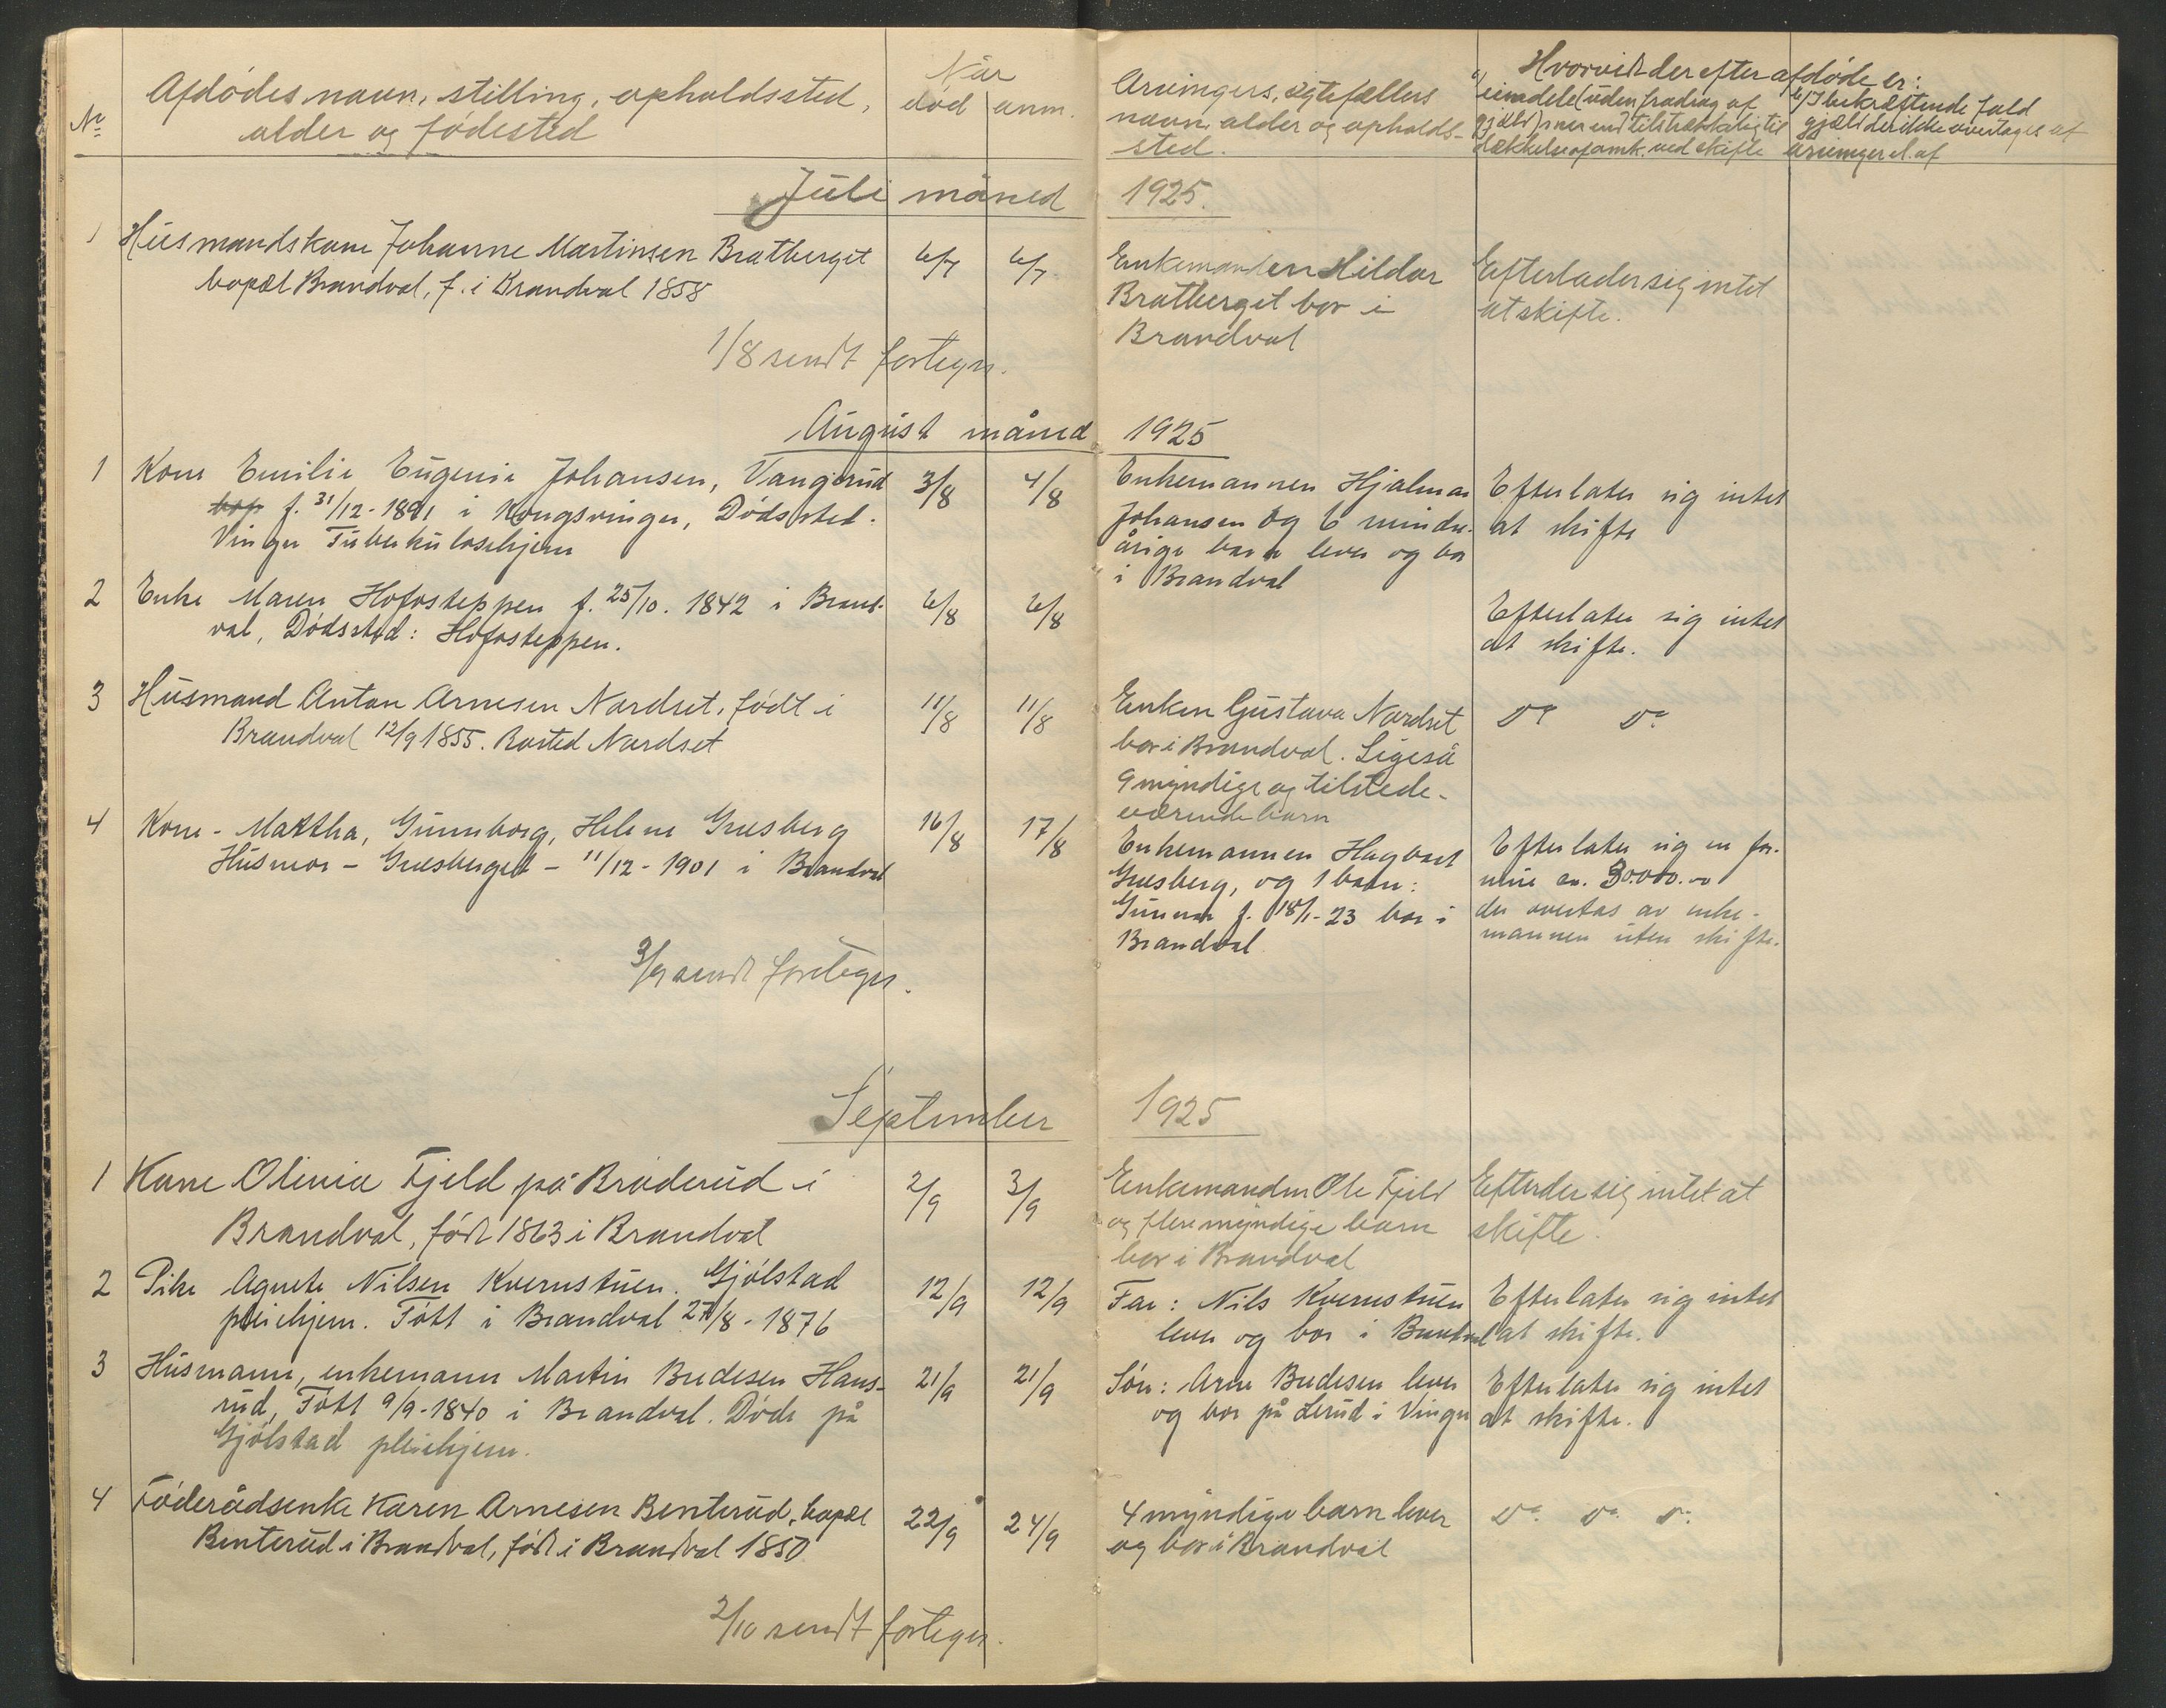 No
Afdødes navn, stilling, opholdssted,
alder og fødested
Når
død
anm.
Arvingers, egtefællers
navn, alder og opholds-
sted.
Hvorvidt der efter afdøde er:
a/ eiendele (uden fradrag af
gjæld) mer end tilstrækkelig til
dækkelse af omk. ved skifte
b/ I bekræftende fald
gjæld der ikke overtages af
arvinger el. af
Juli måned 1925.
1 Husmandskone Johanne Martinsen Bratberget
bopæl Brandval, f. i Brandval 1858
6/7 6/7
Enkemanden Hildor
Bratberget bor i
Brandval
Efterlader sig intet
at skifte.
1/8 sendt fortegn.
August måned 1925
1 Kone Emilie Eugenie Johansen, Vangerud
bop f. 31/12-1891 i Kongsvinger, Dødssted.
Vinger Tuberkulosehjem
3/8 4/8
Enkemannen Hjalmar
Johansen og 6 mindre-
årige barn lever og bor
i Brandval
Efterlater sig intet
at skifte
2 Enke Maren Hofosteppen f. 25/10. 1842 i Brand-
val, Dødssted: Hofosteppen.
6/8 6/8
Efterlater sig intet
at skifte.
3 Husmand Anton Arnesen Nordset, født i
Brandval 12/9 1855. Bosted Nordset
11/8 11/8
Enken Gustava Nordset
bor i Brandval. Ligeså
9 myndige og tilstede-
værende barn
Do Do
4 Kone - Martha, Gunnborg, Helene Gresberg
Husmor - Gresberget - 11/12-1901 i Brandval
16/8 17/8
Enkemannen Hagbart
Gresberg, og 1 barn:
Gunnar f. 18/1-23 bor i
Brandval
Efterlater sig en for-
mue av. 30.000.-
der overtas av enke-
mannen uten skifte.
3/9 sendt fortegn.
September 1925
1 Kone Olivia Fjeld på Bråderud i
Brandval, født 1863 i Brandval
2/9 3/9
Enkemanden Ole Fjeld
og flere myndige barn
bor i Brandval
Efterder sig intet at
skifte.
2 Pike Agnete Nilsen Kvernstuen. Gjølstad
pleiehjem. Født i Brandval 27/8-1876
12/9 12/9
Far: Nils Kvernstuen
lever og bor i Brandval
Efterlater sig intet
at skifte.
3 Husmann, enkemann Martin Bredesen Hans-
rud, Født 9/9-1840 i Brandval. Døde på
Gjølstad pleiehjem.
21/9 21/9
Søn: Arne Bredesen lever
og bor på Lerud i Vinger
Efterlater sig intet
at skifte.
4 Føderådsenke Karen Arnesen Benterud, bopæl
Benterud i Brandval, født i Brandval 1850
22/9 24/9
4 myndige barn lever
og bor i Brandval
Do. Do. Do.
2/10 sendt fortegn.